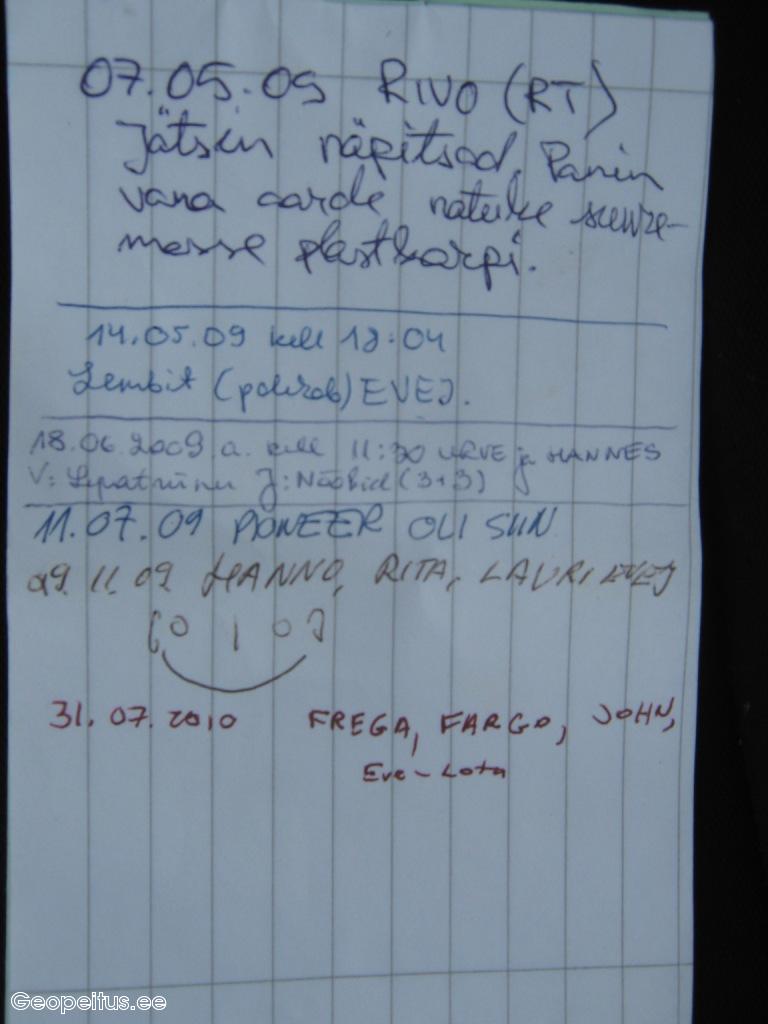 07.05.09 RIVO (RT)
Jätsin näpitsad. Panin
vana aarde natuke suure-
masse plastkarpi.
14.05.09 kell 18:04
Lembit (pokrob) EVEJ.
18.06.2009.a. kell 11:30 URVE ja HANNES
V: Lepatriinu J: Nööbid (3+3)
11.07.09 PIONEER OLI SIIN
29.11.09 HANNO, RITA, LAURI EVEJ
31.07.2010 FREGA, FARGO, JOHN,
Eve-Lota
Geopeitus.ee